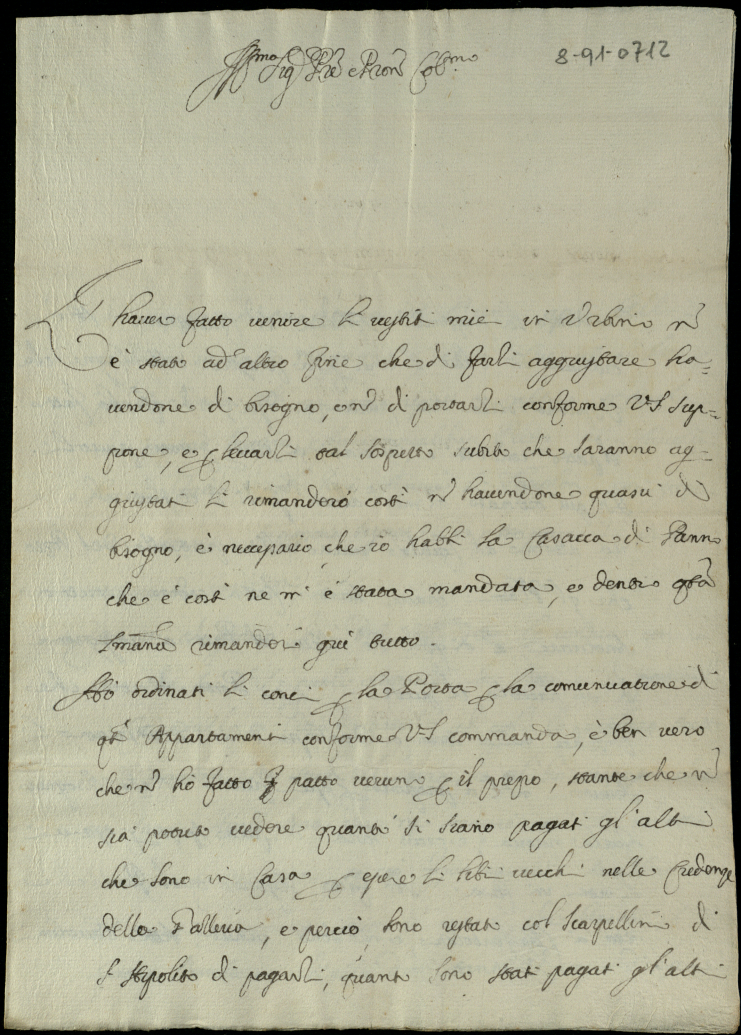 Ill.mo Sig.r P͞re e P͞ron Col.mo
8-91-0712
L'haver fatto venire li vestiti miei in Urbino n͞
è stato ad'altro fine che di farli aggiustare ha=
vendone di bisogno, e n͞ di portarli conforme VS sup=
pone, e p levarli dal sospetto subito che saranno ag=
giustati li rimanderò costì n͞ havendone quasi di
bisogno, è necessario che io habbi la Casacca di Panno
che è costì ne m'è stata mandata, e dentro q͞ta
sman͞a rimanderò quì tutto.
Hò ordinati li conci p la Porta p la comunicatione di
q͞ti Appartamenti conforme VS commanda, è ben vero
che n͞ hò fatto patto veruno p il prezzo, stante che n͞
s'è potuto vedere quanto si siano pagati gl'altri
che sono in Casa p essere li libri vecchi nelle Credenze
della Galleria, e perciò sono restato col Scarpellino di
S Ippolito di pagarli, quanto sono stati pagati gl'altri